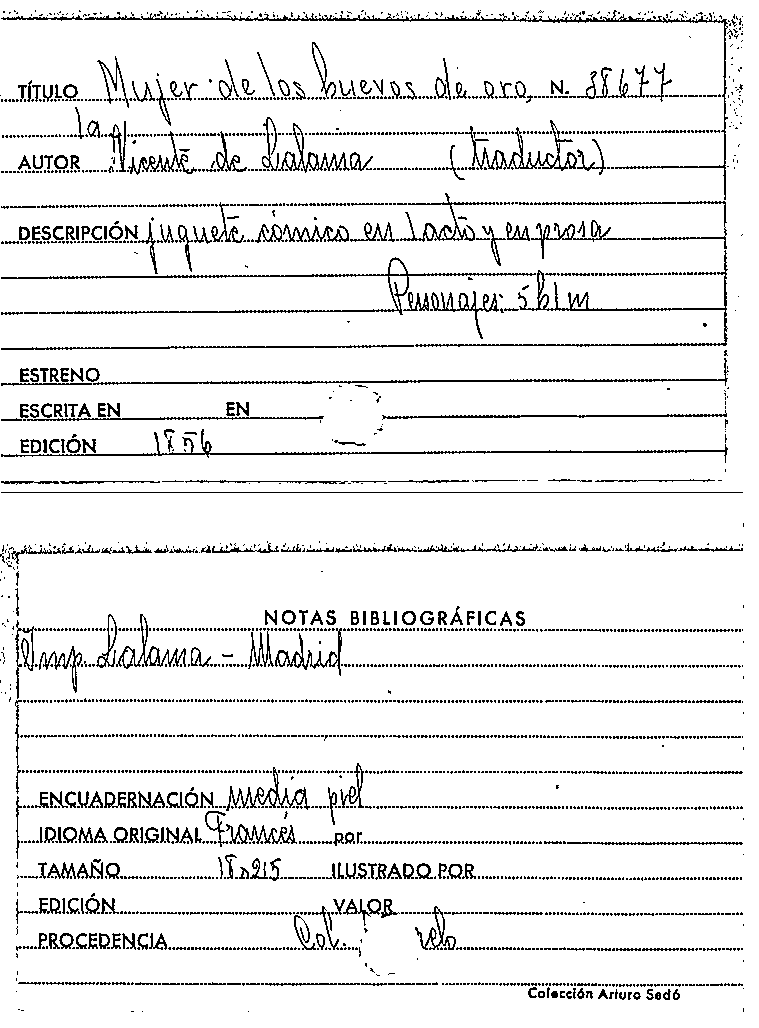 TÍTULO Mujer de los huevos de oro, N. 38677
la
AUTOR Vicente de Lalama (traductor)
DESCRIPCIÓN juguete cómico en 1 acto y en prosa
Personajes: 5 h 1 m
ESTRENO
ESCRITA EN EN
EDICIÓN 1856
NOTAS BIBLIOGRÁFICAS
Imp Lalama - Madrid
ENCUADERNACIÓN media piel
IDIOMA ORIGINAL Francés por
TAMAÑO ILUSTRADO POR
EDICIÓN VALOR
PROCEDENCIA Col.
Colección Arturo Sedó